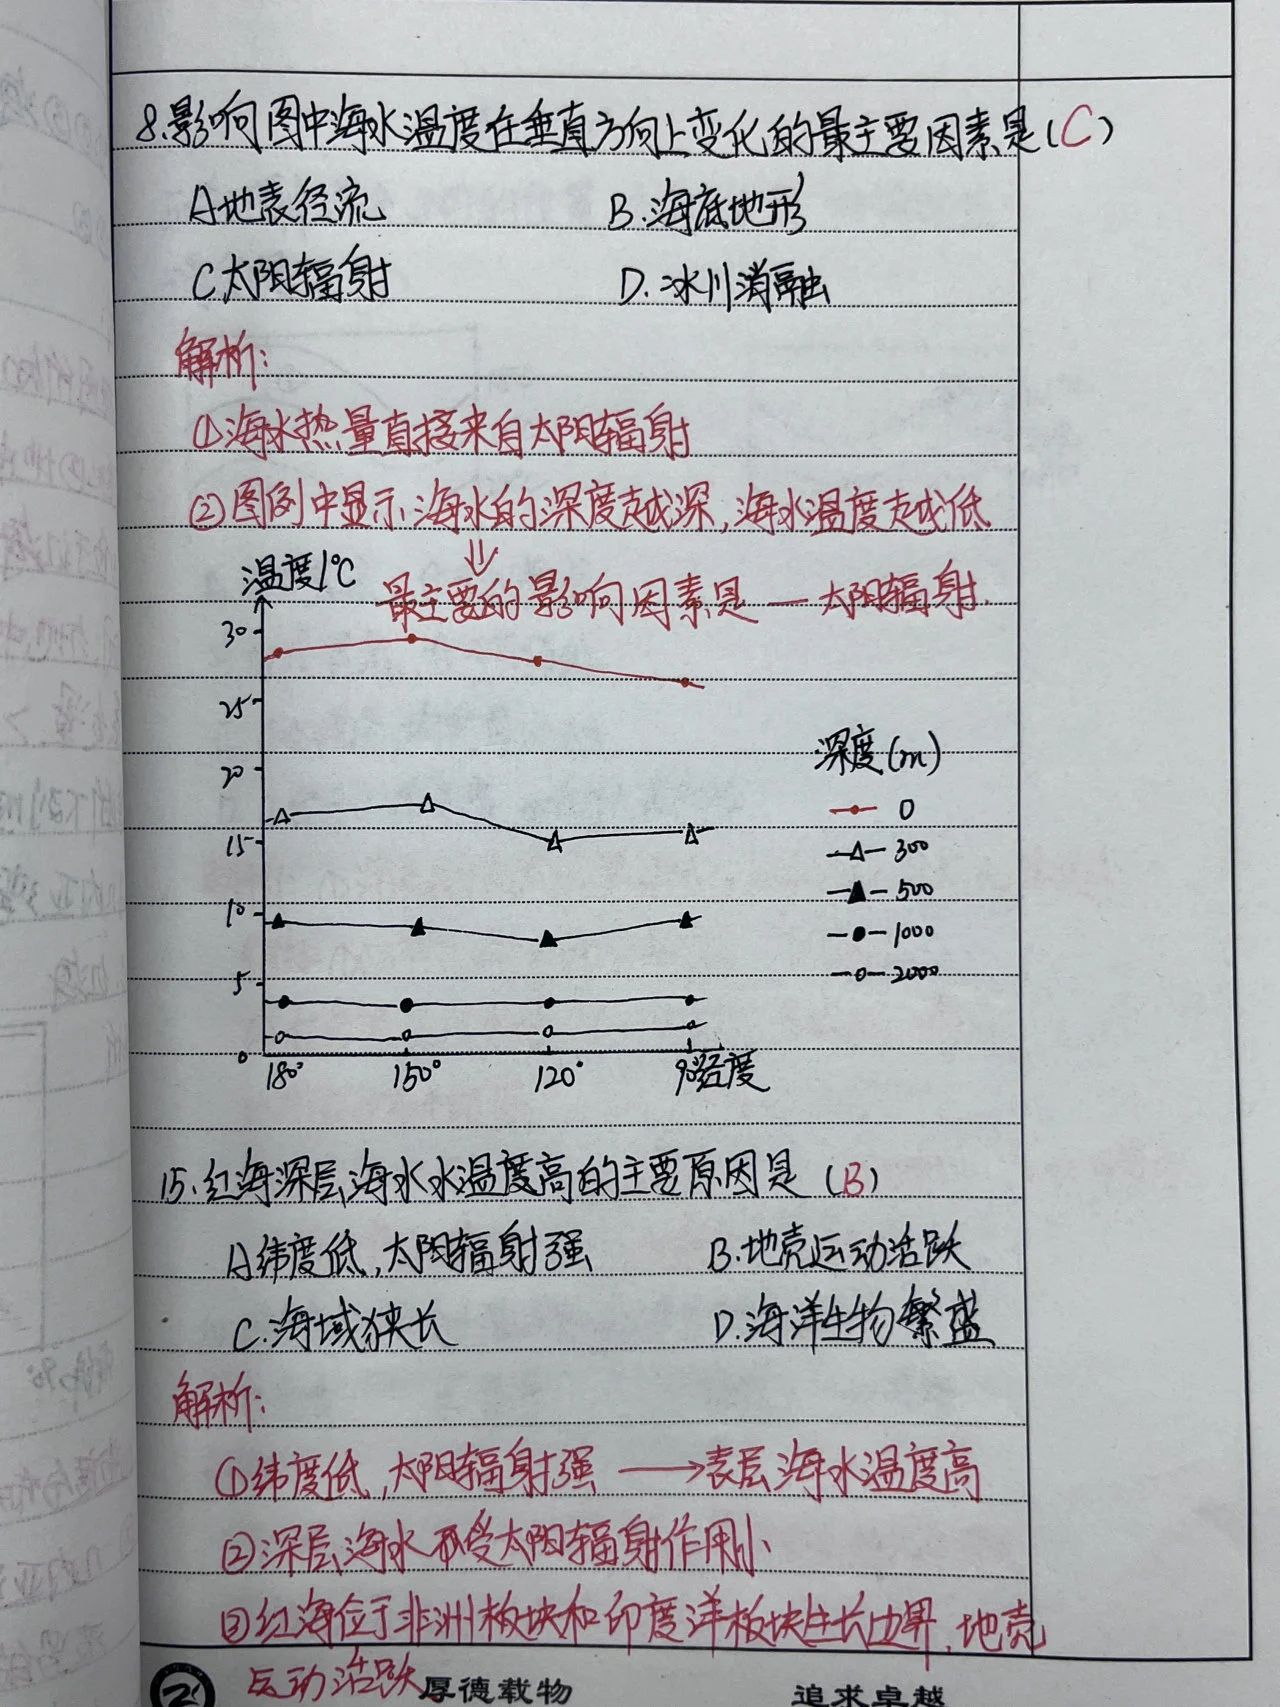 8.影响图中海水温度在垂直方向上变化的最主要因素是(C)
A地表径流 B.海底地形
C太阳辐射 D.冰川消融
解析:
①海水热量直接来自太阳辐射
②图例中显示海水的深度越深,海水温度越低
⇓
最主要的影响因素是—太阳辐射.
温度/℃
30
25
20
15
10
5
0
180° 150° 120° 90°经度
深度(m)
0
300
500
1000
2000
15.红海深层海水水温度高的主要原因是(B)
A纬度低,太阳辐射强 B.地壳运动活跃
C.海域狭长 D.海洋生物繁盛
解析:
①纬度低,太阳辐射强→表层海水温度高
②深层海水受太阳辐射作用小
③红海位于非洲板块和印度洋板块生长边界,地壳
运动活跃
厚德载物 追求卓越